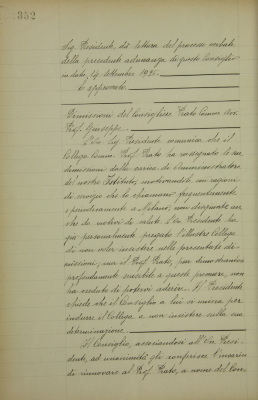 352
Sig. Presidente, dà lettura del processo verbale
della precedente adunanza di questo Consiglio
in data 14 settembre 1925.
È approvato.
Dimissioni del Consigliere Prato Comm. Avv.
Prof. Giuseppe.
Ill. Sig. Presidente comunica che il
Collega Comm. Prof. Prato ha rassegnato le sue
dimissioni dalla carica di Amministratore
del nostro Istituto, motivandole con ragioni
di servizio che lo chiamano frequentemente
a Milano, non disgiunte an-
che da motivi di salute. Il Presidente ha
già personalmente pregato l'illustre Collega
di non voler insistere nelle presentate di-
missioni, ma il Prof. Prato, pur dimostrandosi
profondamente sensibile a queste premure, non
ha creduto di potervi aderire. Il Presidente
chiede che il Consiglio a lui si unisca per
indurre il Collega a non insistere nella sua
determinazione.
Il Consiglio, associandosi all'On. Presi-
dente, ad unanimità gli conferisce l'incarico
di rinnovare al Prof. Prato, a nome del Con-